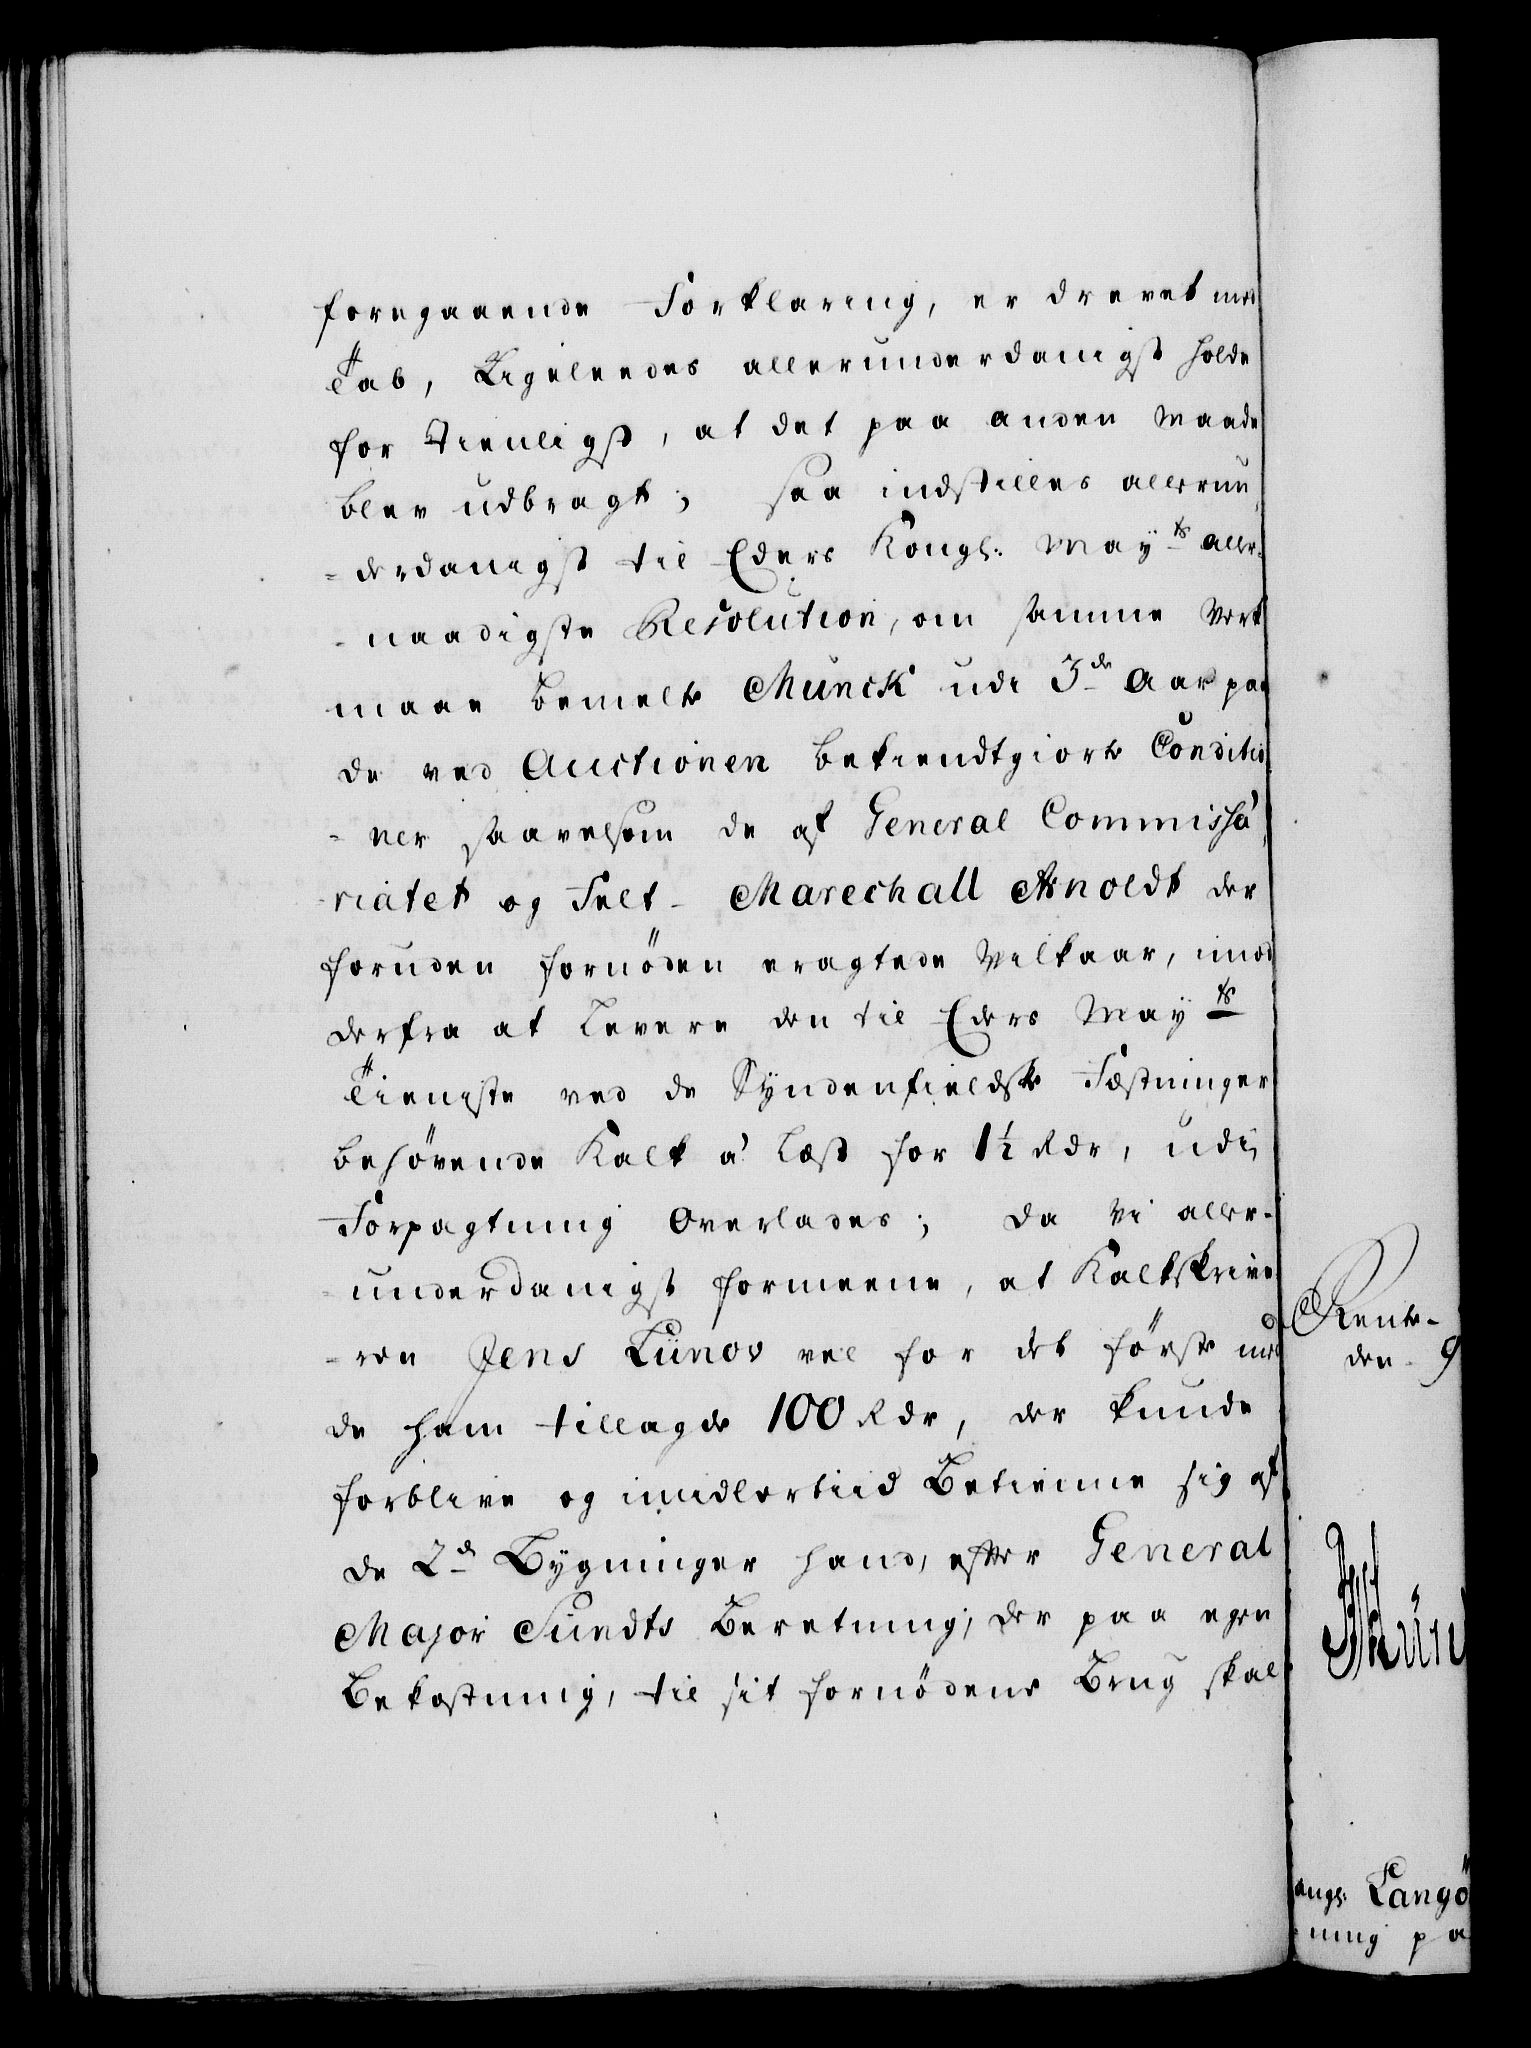 foregaaende Forklaring, er drevet med
Tab, Ligeleedes allerunderdanigst holde
for tienligst, at det paa anden Maade
blev udbragt; saa indstilles allerun
-derdanigst til Eders Kongl: May:ts aller-
-naadigste Resolution, om samme Verk
maae bemelte Munck udi 3de Aar paa
de ved Auctionen bekiendtgiorte Conditio
-ner saavelsom de af General Commissa
riatet og Felt-Marechall Arnoldt der
foruden fornöden eragtede Vilkaar, imod
derfra at levere den til Eders May:ts
Tieniste ved de Syndenfieldske Fæstninger
behövende Kalk á Læst for 1½ Rdr, udi
Forpagtning Overlades; da Vi aller-
-underdanigst formeene, at Kalkskrive
-ren Jens Lünov vel for det förste med
de ham tillagde 100 Rdr, der kunde
forblive og imidlertiid Betienne sig af
de 2de Bygninger hand, efter General
Major Sundts Beretning, der paa egen
Bekostning, til sit fornödene Brug skal
Rente-
den 9
angl: Langö
-ning pa